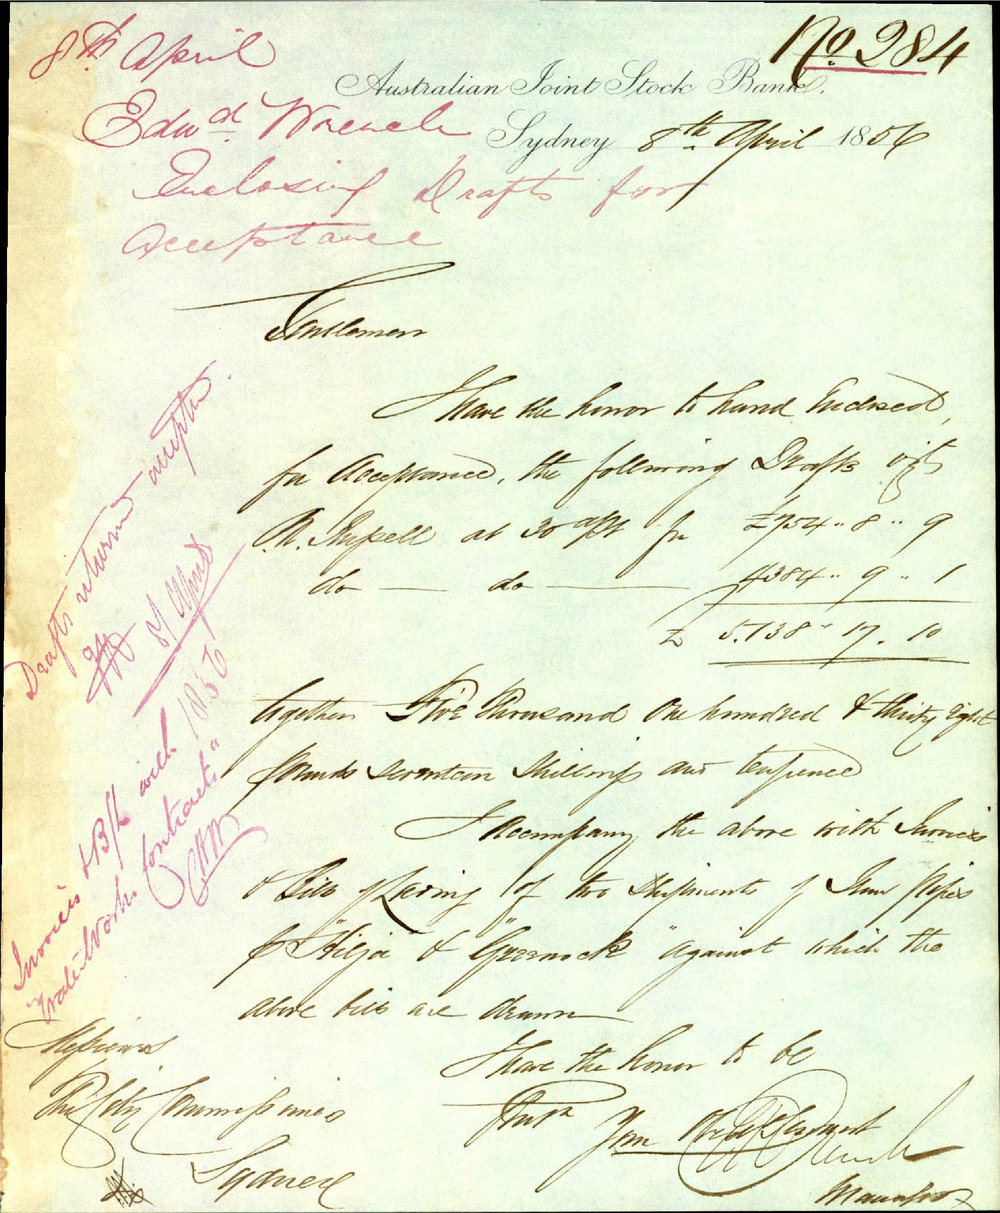 No. 284
8th April
Edwd Wrench
Enclosing Drafts for
Acceptance
Australian Joint Stock Bank,
Sydney 8th April 1856
Gentlemen
I have the honor to hand Enclosed,
for Acceptance, the following Drafts viz
at 30 for £754 " 8 " 9
do — do — 4384 " 9 " 1
£ 5.138 " 17 . 10
together Five Thousand One hundred & thirty Eight
pounds seventeen Shillings and tenpence
I accompany the above with Invoices
& Bills of Lading of two Shipments of Iron Pipes
p " & "Greenock" against which the
above bills are drawn
I have the honor to be
Gentn Your Obedt Servant
Wrench
Manager
Messieurs
The City Commissioners
Sydney
Drafts returned accepted.
8/ April
Invoices & B/L with 1856
"Water Works Contracts"